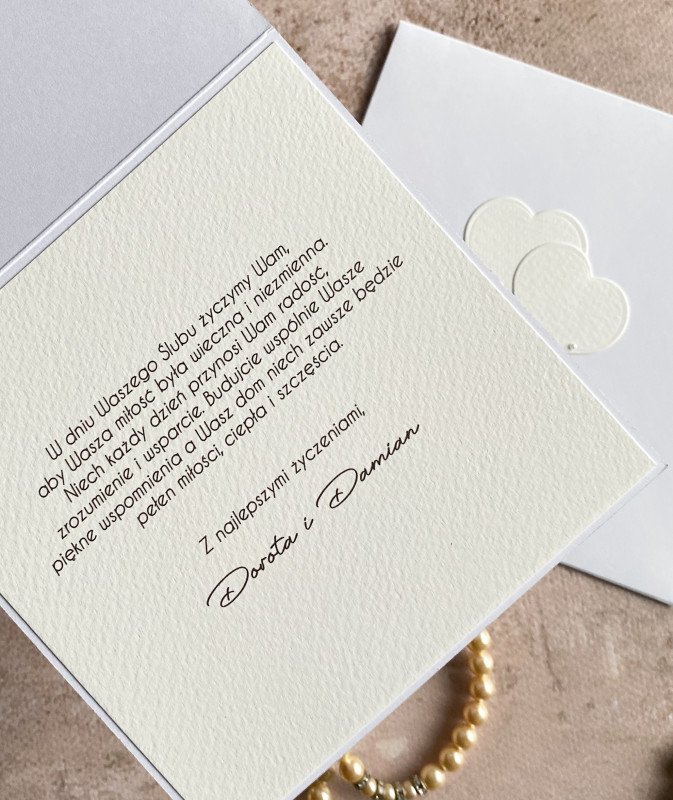 W dniu Waszego Ślubu życzymy Wam,
aby Wasza miłość była wieczna i niezmienna.
Niech każdy dzień przynosi Wam radość,
zrozumienie i wsparcie. Budujcie wspólnie Wasze
piękne wspomnienia a Wasz dom niech zawsze będzie
pełen miłości, ciepła i szczęścia.
Z najlepszymi życzeniami,
Dorota i Damian